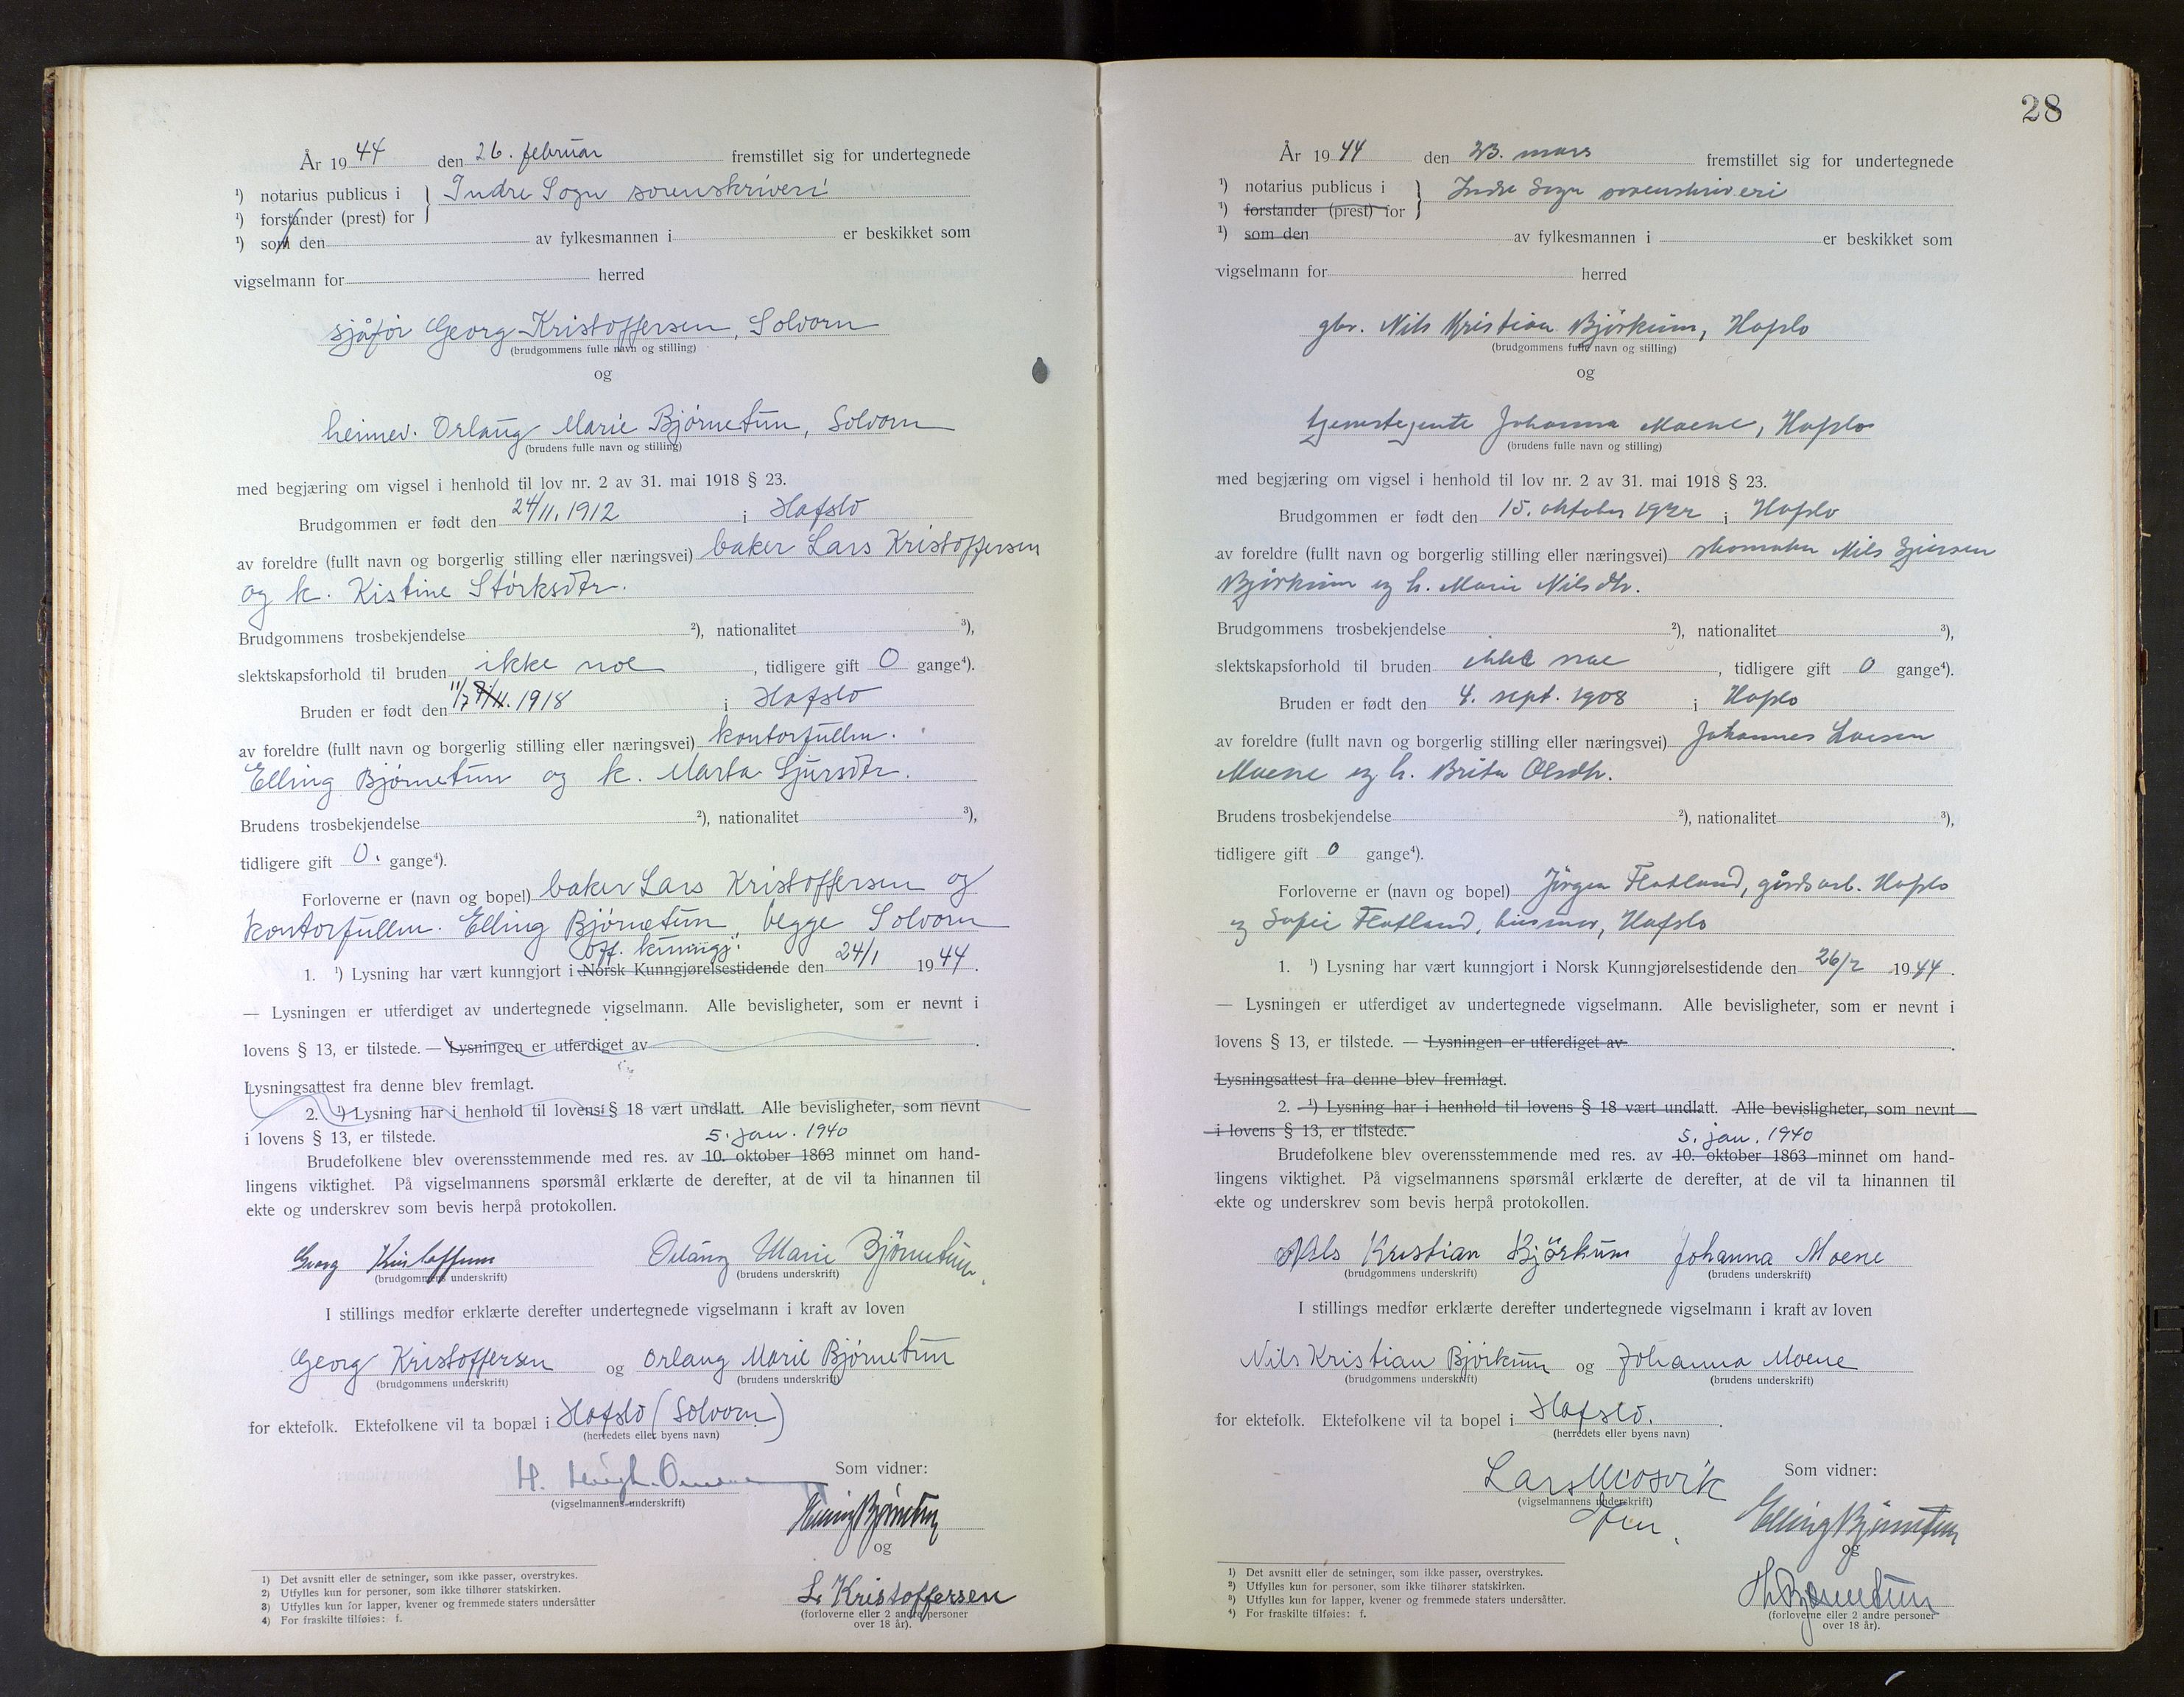 År 1944 den 26. februar fremstillet sig for undertegnede
¹) notarius publicus i } Indre Sogn sorenskriveri
¹) forstander (prest) for
¹) som den av fylkesmannen i er beskikket som
vigselmann for herred
sjåfør Georg Kristoffersen, Solvorn
(brudgommens fulle navn og stilling)
og
heimev. Orlaug Marie Bjørnetun, Solvorn
(brudens fulle navn og stilling)
med begjæring om vigsel i henhold til lov nr. 2 av 31. mai 1918 § 23.
Brudgommen er født den 24/11. 1912 i Hafslo
av foreldre (fullt navn og borgerlig stilling eller næringsvei) baker Lars Kristoffersen
og k. Kistine Størksdtr.
Brudgommens trosbekjendelse ²), nationalitet ³),
slektskapsforhold til bruden ikke noe, tidligere gift 0 gange⁴).
Bruden er født den 11/7 1918 i Hafslo
av foreldre (fullt navn og borgerlig stilling eller næringsvei) kontorfullm.
Elling Bjørnetun og k. Marta Sjursdtr.
Brudens trosbekjendelse ²), nationalitet ³),
tidligere gift 0. gange⁴).
Forloverne er (navn og bopel) baker Lars Kristoffersen og
kontorfullm. Elling Bjørnetun, begge Solvorn
off. kunngj.
1. ¹) Lysning har vært kunngjort i Norsk Kunngjørelsestidende den 24/1 1944.
— Lysningen er utferdiget av undertegnede vigselmann. Alle bevisligheter, som er nevnt i
lovens § 13, er tilstede. — Lysningen er utferdiget av .
Lysningsattest fra denne blev fremlagt.
2. ¹) Lysning har i henhold til lovens § 18 vært undlatt. Alle bevisligheter, som nevnt
i lovens § 13, er tilstede.
5. jan. 1940
Brudefolkene blev overensstemmende med res. av 10. oktober 1863 minnet om hand-
lingens viktighet. På vigselmannens spørsmål erklærte de derefter, at de vil ta hinannen til
ekte og underskrev som bevis herpå protokollen.
Georg Kristoffersen Orlaug Marie Bjørnetun.
(brudgommens underskrift) (brudens underskrift)
I stillings medfør erklærte derefter undertegnede vigselmann i kraft av loven
Georg Kristoffersen og Orlaug Marie Bjørnetun
(brudgommens underskrift) (brudens underskrift)
for ektefolk. Ektefolkene vil ta bopæl i Hafslo (Solvorn)
(herredets eller byens navn)
H.
(vigselmannens underskrift)
Som vidner:
Elling Bjørnetun
og
L. Kristoffersen
(forloverne eller 2 andre personer
over 18 år).
1) Det avsnitt eller de setninger, som ikke passer, overstrykes.
2) Utfylles kun for personer, som ikke tilhører statskirken.
3) Utfylles kun for lapper, kvener og fremmede staters undersåtter
4) For fraskilte tilføies: f.
28
År 1944 den 23. mars fremstillet sig for undertegnede
¹) notarius publicus i } Indre Sogn sorenskriveri
¹) forstander (prest) for
¹) som den av fylkesmannen i er beskikket som
vigselmann for herred
gbr. Nils Kristian Bjørkum, Hafslo
(brudgommens fulle navn og stilling)
og
tjenestejente Johanna Moene, Hafslo
(brudens fulle navn og stilling)
med begjæring om vigsel i henhold til lov nr. 2 av 31. mai 1918 § 23.
Brudgommen er født den 15. oktober 1922 i Hafslo
av foreldre (fullt navn og borgerlig stilling eller næringsvei) skomaker Nils
Bjørkum og h. Marie Nilsdtr.
Brudgommens trosbekjendelse ²), nationalitet ³),
slektskapsforhold til bruden ikke noe, tidligere gift 0 gange⁴).
Bruden er født den 4. sept. 1908 i Hafslo
av foreldre (fullt navn og borgerlig stilling eller næringsvei) Johannes Larsen
Moene og h. Brita Olsdtr.
Brudens trosbekjendelse ²), nationalitet ³),
tidligere gift 0 gange⁴).
Forloverne er (navn og bopel) Jørgen Flatland, gårdsarb. Hafslo
og Sofie Flatland, husmor, Hafslo
1. ¹) Lysning har vært kunngjort i Norsk Kunngjørelsestidende den 26/2 1944.
— Lysningen er utferdiget av undertegnede vigselmann. Alle bevisligheter, som er nevnt i
lovens § 13, er tilstede. — Lysningen er utferdiget av .
Lysningsattest fra denne blev fremlagt.
2. ¹) Lysning har i henhold til lovens § 18 vært undlatt. Alle bevisligheter, som nevnt
i lovens § 13, er tilstede.
5. jan. 1940
Brudefolkene blev overensstemmende med res. av 10. oktober 1863 minnet om hand-
lingens viktighet. På vigselmannens spørsmål erklærte de derefter, at de vil ta hinannen til
ekte og underskrev som bevis herpå protokollen.
Nils Kristian Bjørkum Johanna Moene
(brudgommens underskrift) (brudens underskrift)
I stillings medfør erklærte derefter undertegnede vigselmann i kraft av loven
Nils Kristian Bjørkum og Johanna Moene
(brudgommens underskrift) (brudens underskrift)
for ektefolk. Ektefolkene vil ta bopel i Hafslo.
(herredets eller byens navn)
Lars Mosvik
(vigselmannens underskrift)
Som vidner:
Elling Bjørnetun
og
Bjørnetun
(forloverne eller 2 andre personer
over 18 år).
¹) Det avsnitt eller de setninger, som ikke passer, overstrykes.
²) Utfylles kun for personer, som ikke tilhører statskirken.
³) Utfylles kun for lapper, kvener og fremmede staters undersåtter.
⁴) For fraskilte tilføies: f.